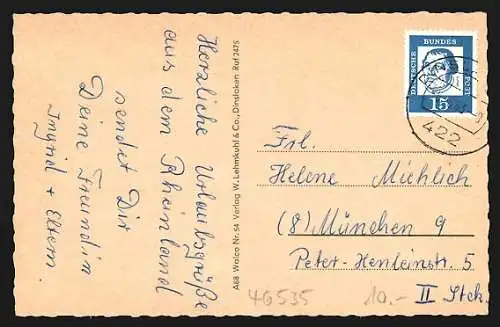 Herzliche Urlaubsgrüße
aus dem Rheinland
sendet Dir
Deine Freundin
Ingrid + Eltern.
A88 Walco Nr. 54 Verlag W. Lehmkuhl & Co., Dinslaken Ruf 2475
DEUTSCHE
BUNDES
POST
15
422
Frl.
Helene Miehlich
(8) München 9
Peter-Henleinstr. 5
II Stck.
46535
10.-